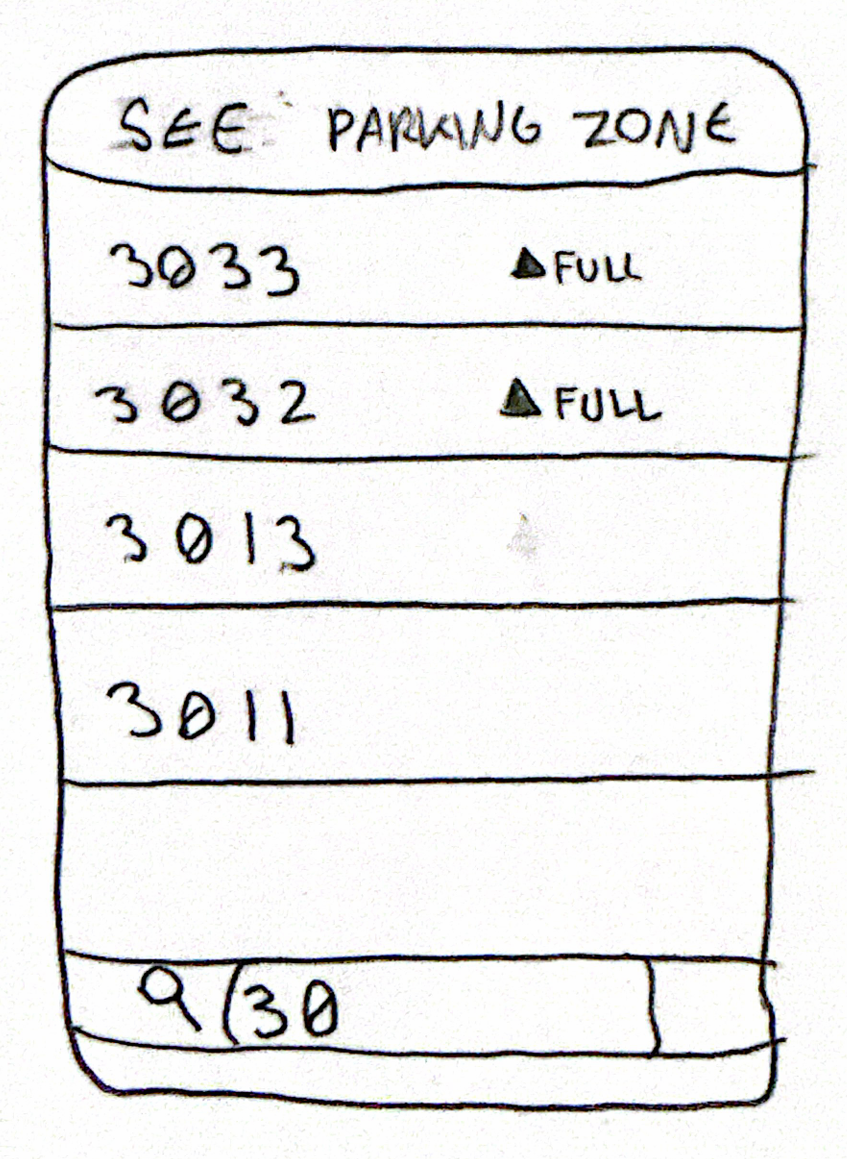 SEE PARKING ZONE
3033 FULL
3032 FULL
3013
3011
30